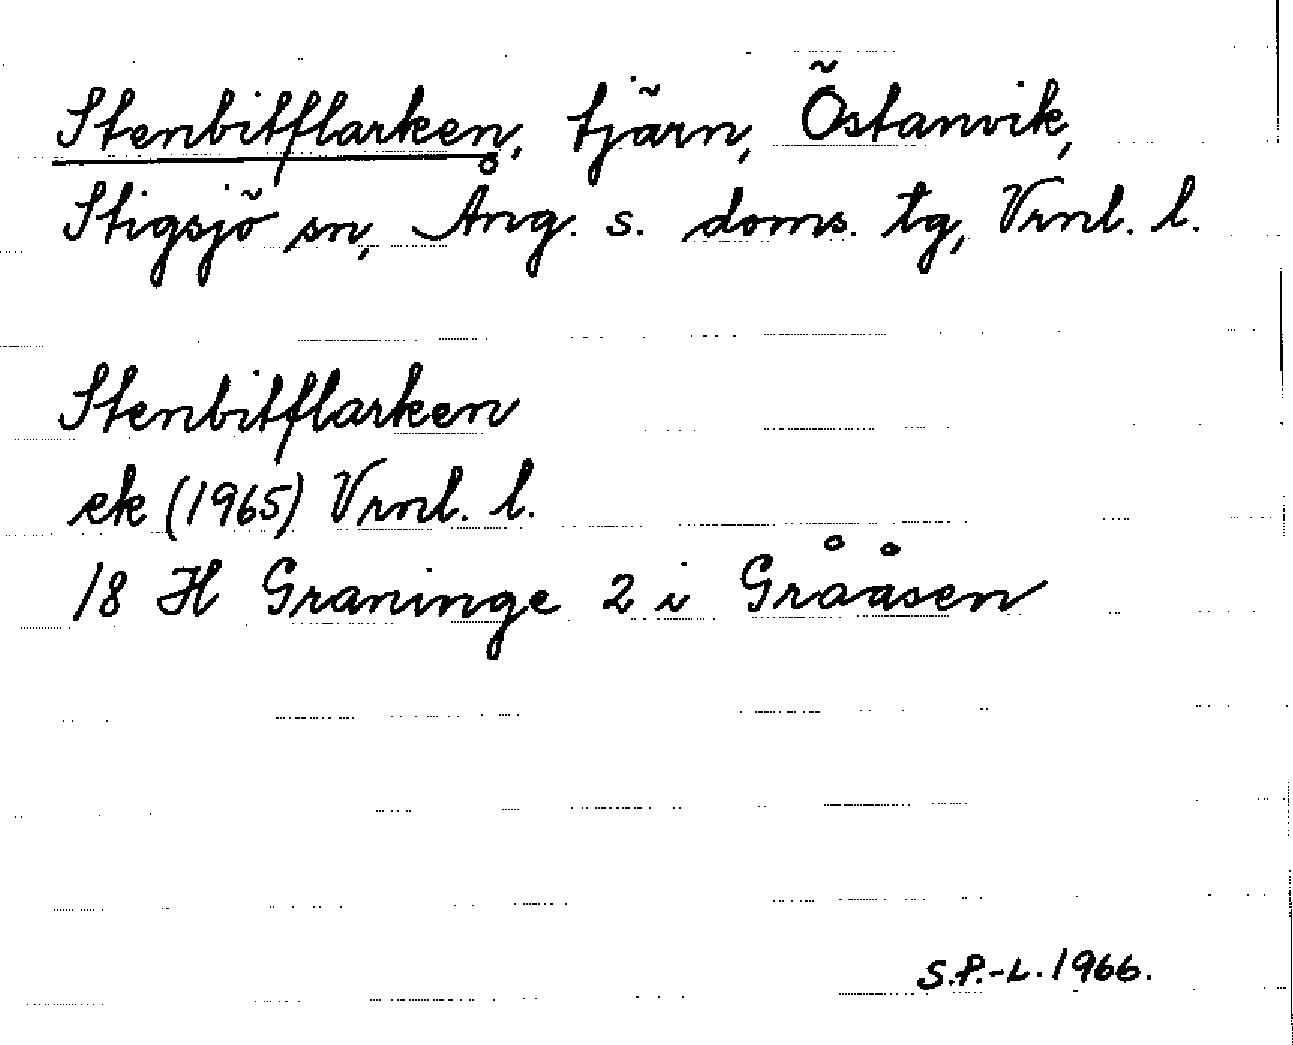 Stenbitflarken, tjärn, Östanvik,
Stigsjö sn, Ång. s. doms. tg, Vrnl. l.
Stenbitflarken
ek (1965) Vrnl. l.
18 H Graninge 2 i Grååsen
S.P.-L. 1966.